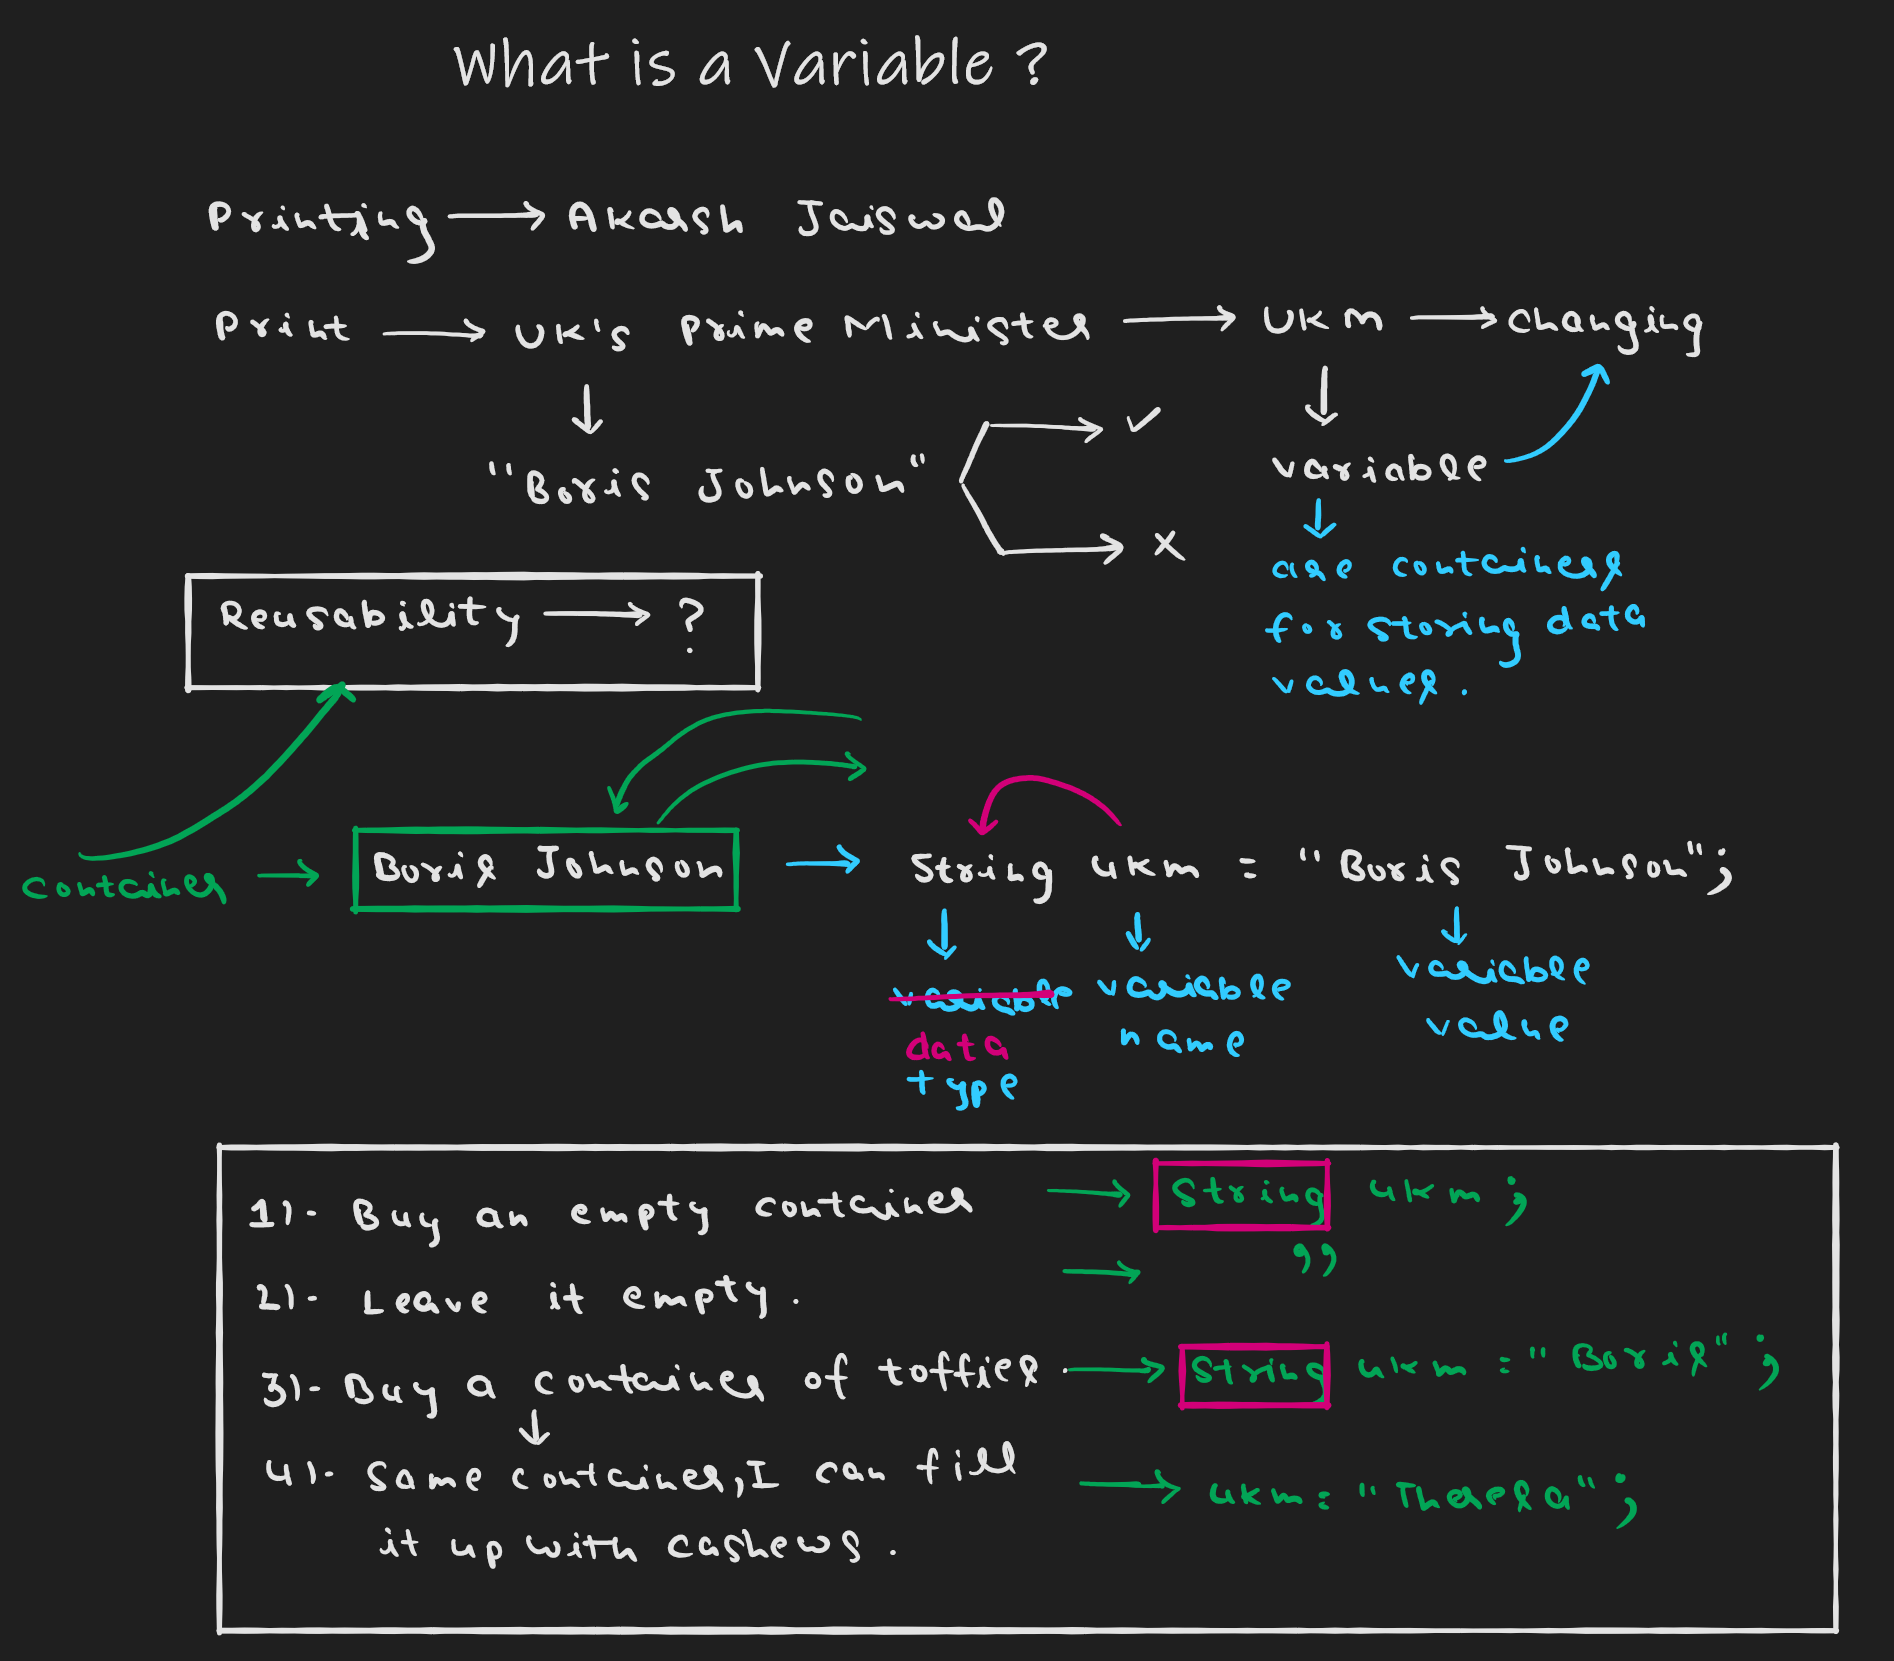 What is a Variable ?
Printing → Akarsh Jaiswal
Print → UK's Prime Minister → UKM → changing
"Boris Johnson" → ✓
variable
→ x
are containers
for storing data
values.
Reusability → ?
container → Boris Johnson → String ukm = "Boris Johnson";
variable variable variable
data name value
type
1)- Buy an empty container → String ukm;
2)- Leave it empty. → ,,
3)- Buy a container of toffies. → String ukm = "Boris";
4)- Same container, I can fill → ukm = "Theresa";
it up with cashews.